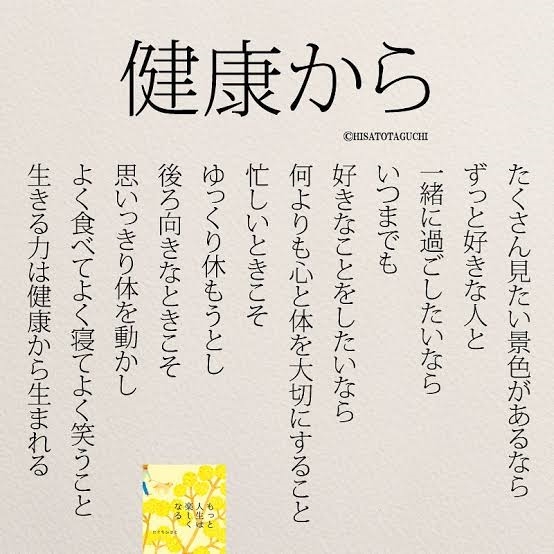 健康から
©HISATOTAGUCHI
たくさん見たい景色があるなら
ずっと好きな人と
一緒に過ごしたいなら
いつまでも
好きなことをしたいなら
何よりも心と体を大切にすること
忙しいときこそ
ゆっくり休もうとし
後ろ向きなときこそ
思いっきり体を動かし
よく食べてよく寝てよく笑うこと
生きる力は健康から生まれる
もっと
人生は
楽しく
なる